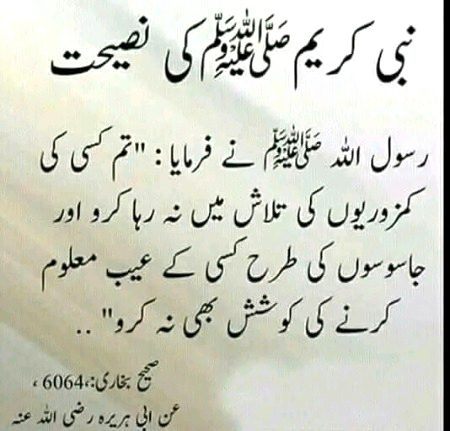 نبی کریم ﷺ کی نصیحت
رسول اللہ ﷺ نے فرمایا : "تم کسی کی
کمزوریوں کی تلاش میں نہ رہا کرو اور
جاسوسوں کی طرح کسی کے عیب معلوم
کرنے کی کوشش بھی نہ کرو" ..
صحیح بخاری:،6064 ،
عن ابی ہریرہ رضی اللہ عنہ